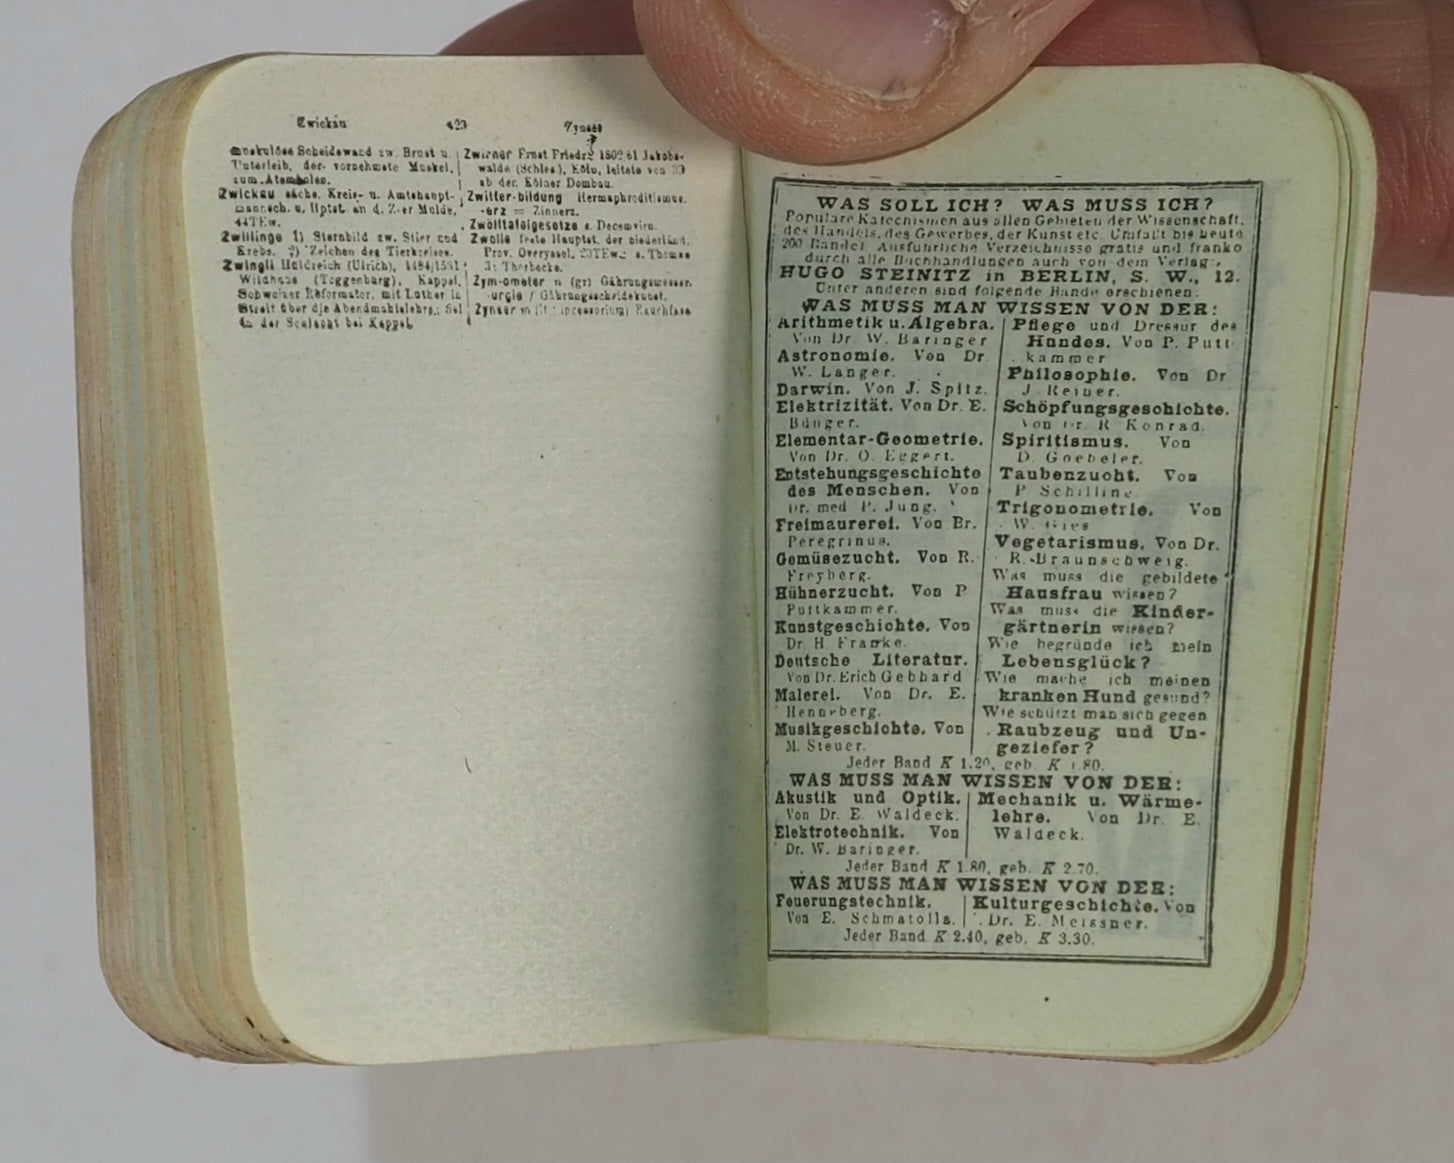 Zwickau 423 Zynser
muskulöse Scheidewand zw. Brust u.
Unterleib, der vornehmste Muskel,
zum Atemholen.
Zwickau sächs. Kreis- u. Amtshaupt-
mannsch. u. Hptst. an d. Z-er Mulde,
44TEw.
Zwillinge 1) Sternbild zw. Stier und
Krebs. 2) Zeichen des Tierkreises.
Zwingli Huldreich (Ulrich), 1484/1531
Wildhaus (Toggenburg), Kappel,
Schweizer Reformator, mit Luther in
Streit über die Abendmahlslehre; fiel
in der Schlacht bei Kappel.
Zwirner Ernst Friedr. 1802/61 Jakobs-
walde (Schles.), Köln, leitete von
ab den Kölner Dombau.
Zwitter-bildung Hermaphroditismus.
-erz = Zinnerz.
Zwölftafelgesetze s. Decemvirn.
Zwolle feste Hauptst. der niederländ.
Prov. Overyssel, s. Thomas
Thorbecke.
Zym-ometer n (gr) Gährungsmesser.
-urgie f Gährungsscheidekunst.
Zynser m Rauchfass
WAS SOLL ICH? WAS MUSS ICH?
Populäre Katechismen aus allen Gebieten der Wissenschaft,
des Handels, des Gewerbes, der Kunst etc. Umfaßt bis heute
200 Bändel Ausführliche Verzeichnisse gratis und franko
durch alle Buchhandlungen auch von dem Verlag:
HUGO STEINITZ in BERLIN, S. W., 12.
Unter anderen sind folgende Bände erschienen:
WAS MUSS MAN WISSEN VON DER:
Arithmetik u. Algebra.
Von Dr. W. Baringer
Astronomie. Von Dr.
W. Langer.
Darwin. Von J. Spitz.
Elektrizität. Von Dr. E.
Bünger.
Elementar-Geometrie.
Von Dr. O. Eggert.
Entstehungsgeschichte
des Menschen. Von
Dr. med. P. Jung.
Freimaurerei. Von Br.
Peregrinus.
Gemüsezucht. Von R.
Freyberg.
Hühnerzucht. Von P
Puttkammer.
Kunstgeschichte. Von
Dr. H. Franke.
Deutsche Literatur.
Von Dr. Erich Gebhard
Malerei. Von Dr. E.
Henneberg.
Musikgeschichte. Von
M. Steuer.
Pflege und Dressur des
Hundes. Von P. Putt-
kammer
Philosophie. Von Dr
J. Reiner.
Schöpfungsgeschichte.
Von Dr. R. Konrad.
Spiritismus. Von
D. Goebeler.
Taubenzucht. Von
P. Schilling.
Trigonometrie. Von
W. Gies
Vegetarismus. Von Dr.
R. Braunschweig.
Was muss die gebildete
Hausfrau wissen?
Was muss die Kinder-
gärtnerin wissen?
Wie begründe ich mein
Lebensglück?
Wie mache ich meinen
kranken Hund gesund?
Wie schützt man sich gegen
Raubzeug und Un-
geziefer?
Jeder Band K 1.20, geb. K 1.80.
WAS MUSS MAN WISSEN VON DER:
Akustik und Optik.
Von Dr. E. Waldeck.
Elektrotechnik. Von
Dr. W. Baringer.
Mechanik u. Wärme-
lehre. Von Dr. E.
Waldeck.
Jeder Band K 1.80, geb. K 2.70.
WAS MUSS MAN WISSEN VON DER:
Feuerungstechnik.
Von E. Schmatolla.
Kulturgeschichte. Von
Dr. E. Meissner.
Jeder Band K 2.40, geb. K 3.30.